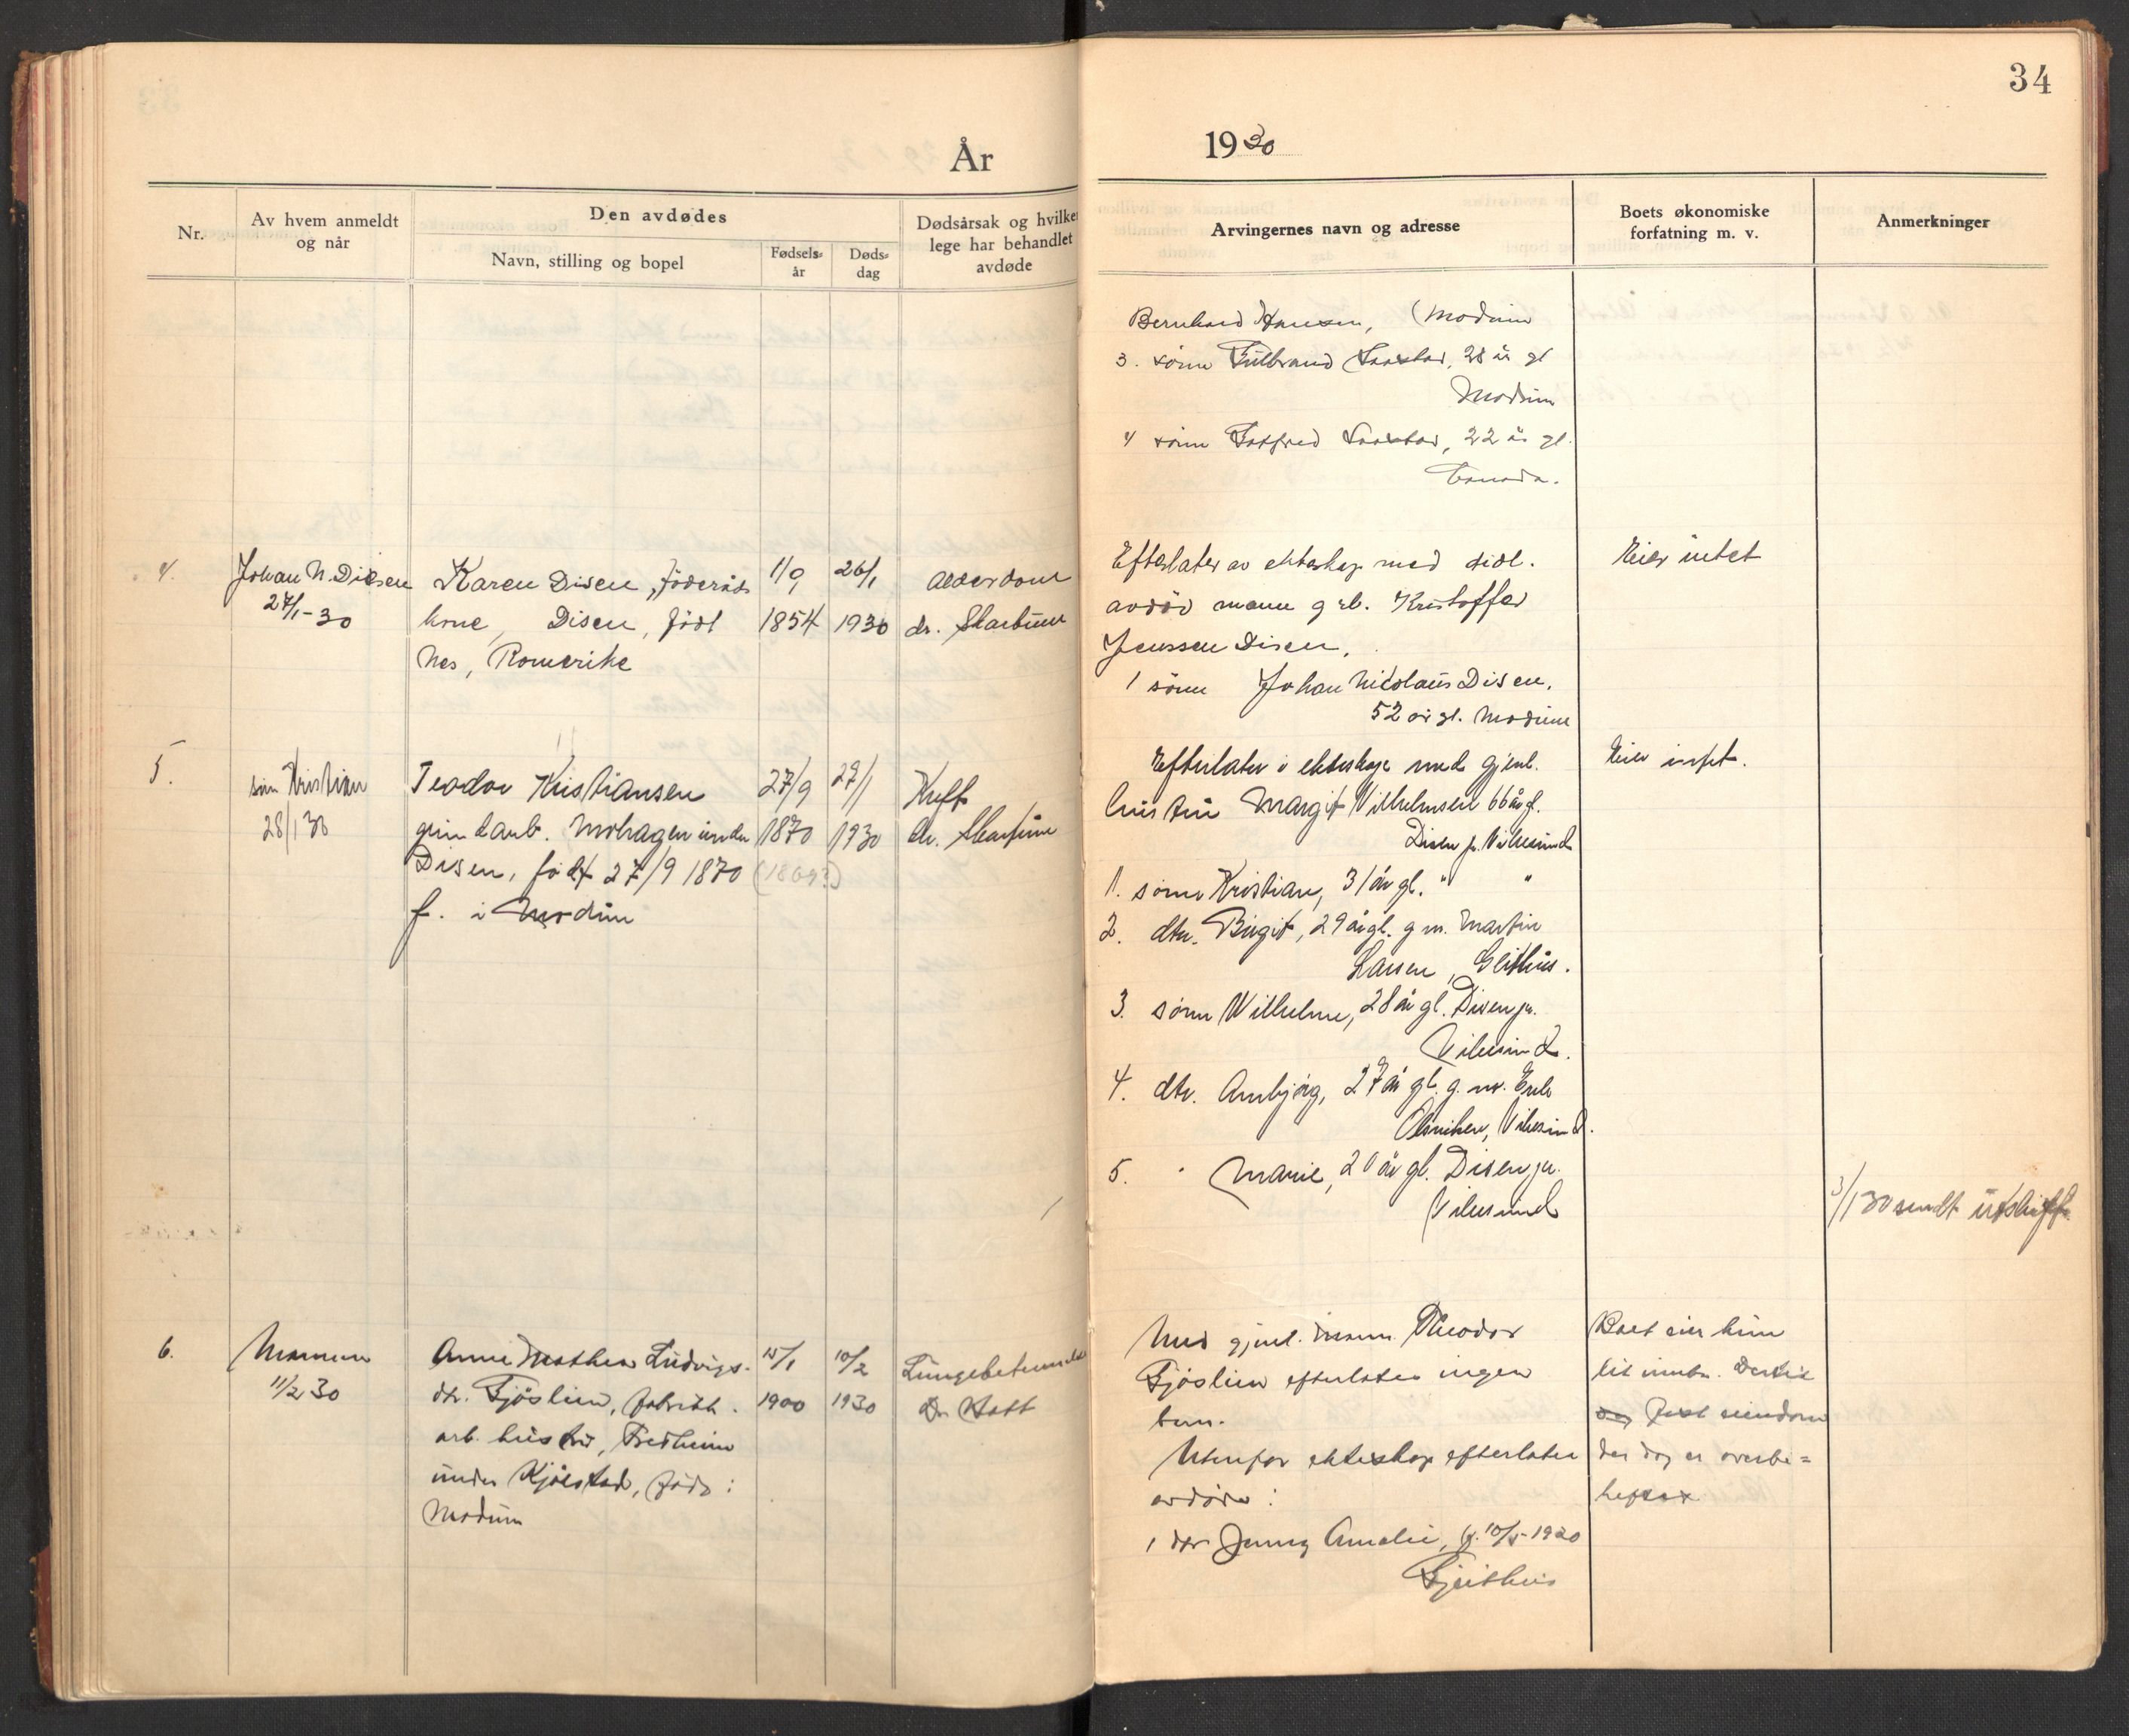 34
År 1930
Nr.
Av hvem anmeldt
og når
Den avdødes
Navn, stilling og bopel
Fødsels-
år
Døds-
dag
Dødsårsak og hvilken
lege har behandlet
avdøde
Arvingernes navn og adresse
Boets økonomiske
forfatning m. v.
Anmerkninger
Bernhard Hansen, Modum
3. sønn Gulbrand 28 år gl
Modum
4 sønn 22 år gl.
Canada.
4.
Johan N. Disen
27/1-30
Karen Disen, föderåds
kone, Disen, født
Nes, Romerike
1/9
1854
26/1
1930
Alderdom
dr. Skartum
Efterlater av ekteskap med tidl.
avdöd mann g rb. Kristoffer
Jenssen Disen.
1 sönn Johan Nicolaus Disen,
52 år gl. Modum
Eier intet
5.
sön Kristian
28/1 30
Teodor Kristiansen
grundarb. Mohagen under
Disen, født 27/9 1870 (1869?)
f. i Modum
27/9
1870
27/1
1930
Kreft
dr. Skartum
Efterlater i ekteskap med gjenl.
hustru Margit Vilhelmsen 66 år gl.
Disen p. Vikersund
1. sönn Kristian, 31 år gl. " "
2. dtr. Birgit, 29 år gl. g m. Martin
Larsen, Geithus.
3. sönn Wilhelm, 28 år gl. Disen pr.
Vikersund.
4. dtr. Ambjörg, 27 år gl. g. m.
Vikersund.
5. " Marie, 20 år gl. Disen pr.
Vikersund
Eier intet.
3/1 30 sendt utskift
6.
Mannen
11/2 30
Anne Mathea Ludvigs-
dtr. Fjöslien, fabrikk-
arb. hustru, Fredheim
under Kjölstad, född i
Modum
15/1
1900
10/2
1930
Lungebetennelse
Dr
Med gjenl. mann Theodor
Fjöslien efterlates ingen
barn.
Utenfor ekteskap efterlater
avdöde:
1 dtr Jenny Amalie, f. 10/5-1920
Geithus
Boet eier kun
litt innbo. Dertil
fast eiendom
der dog er overbe=
heftet